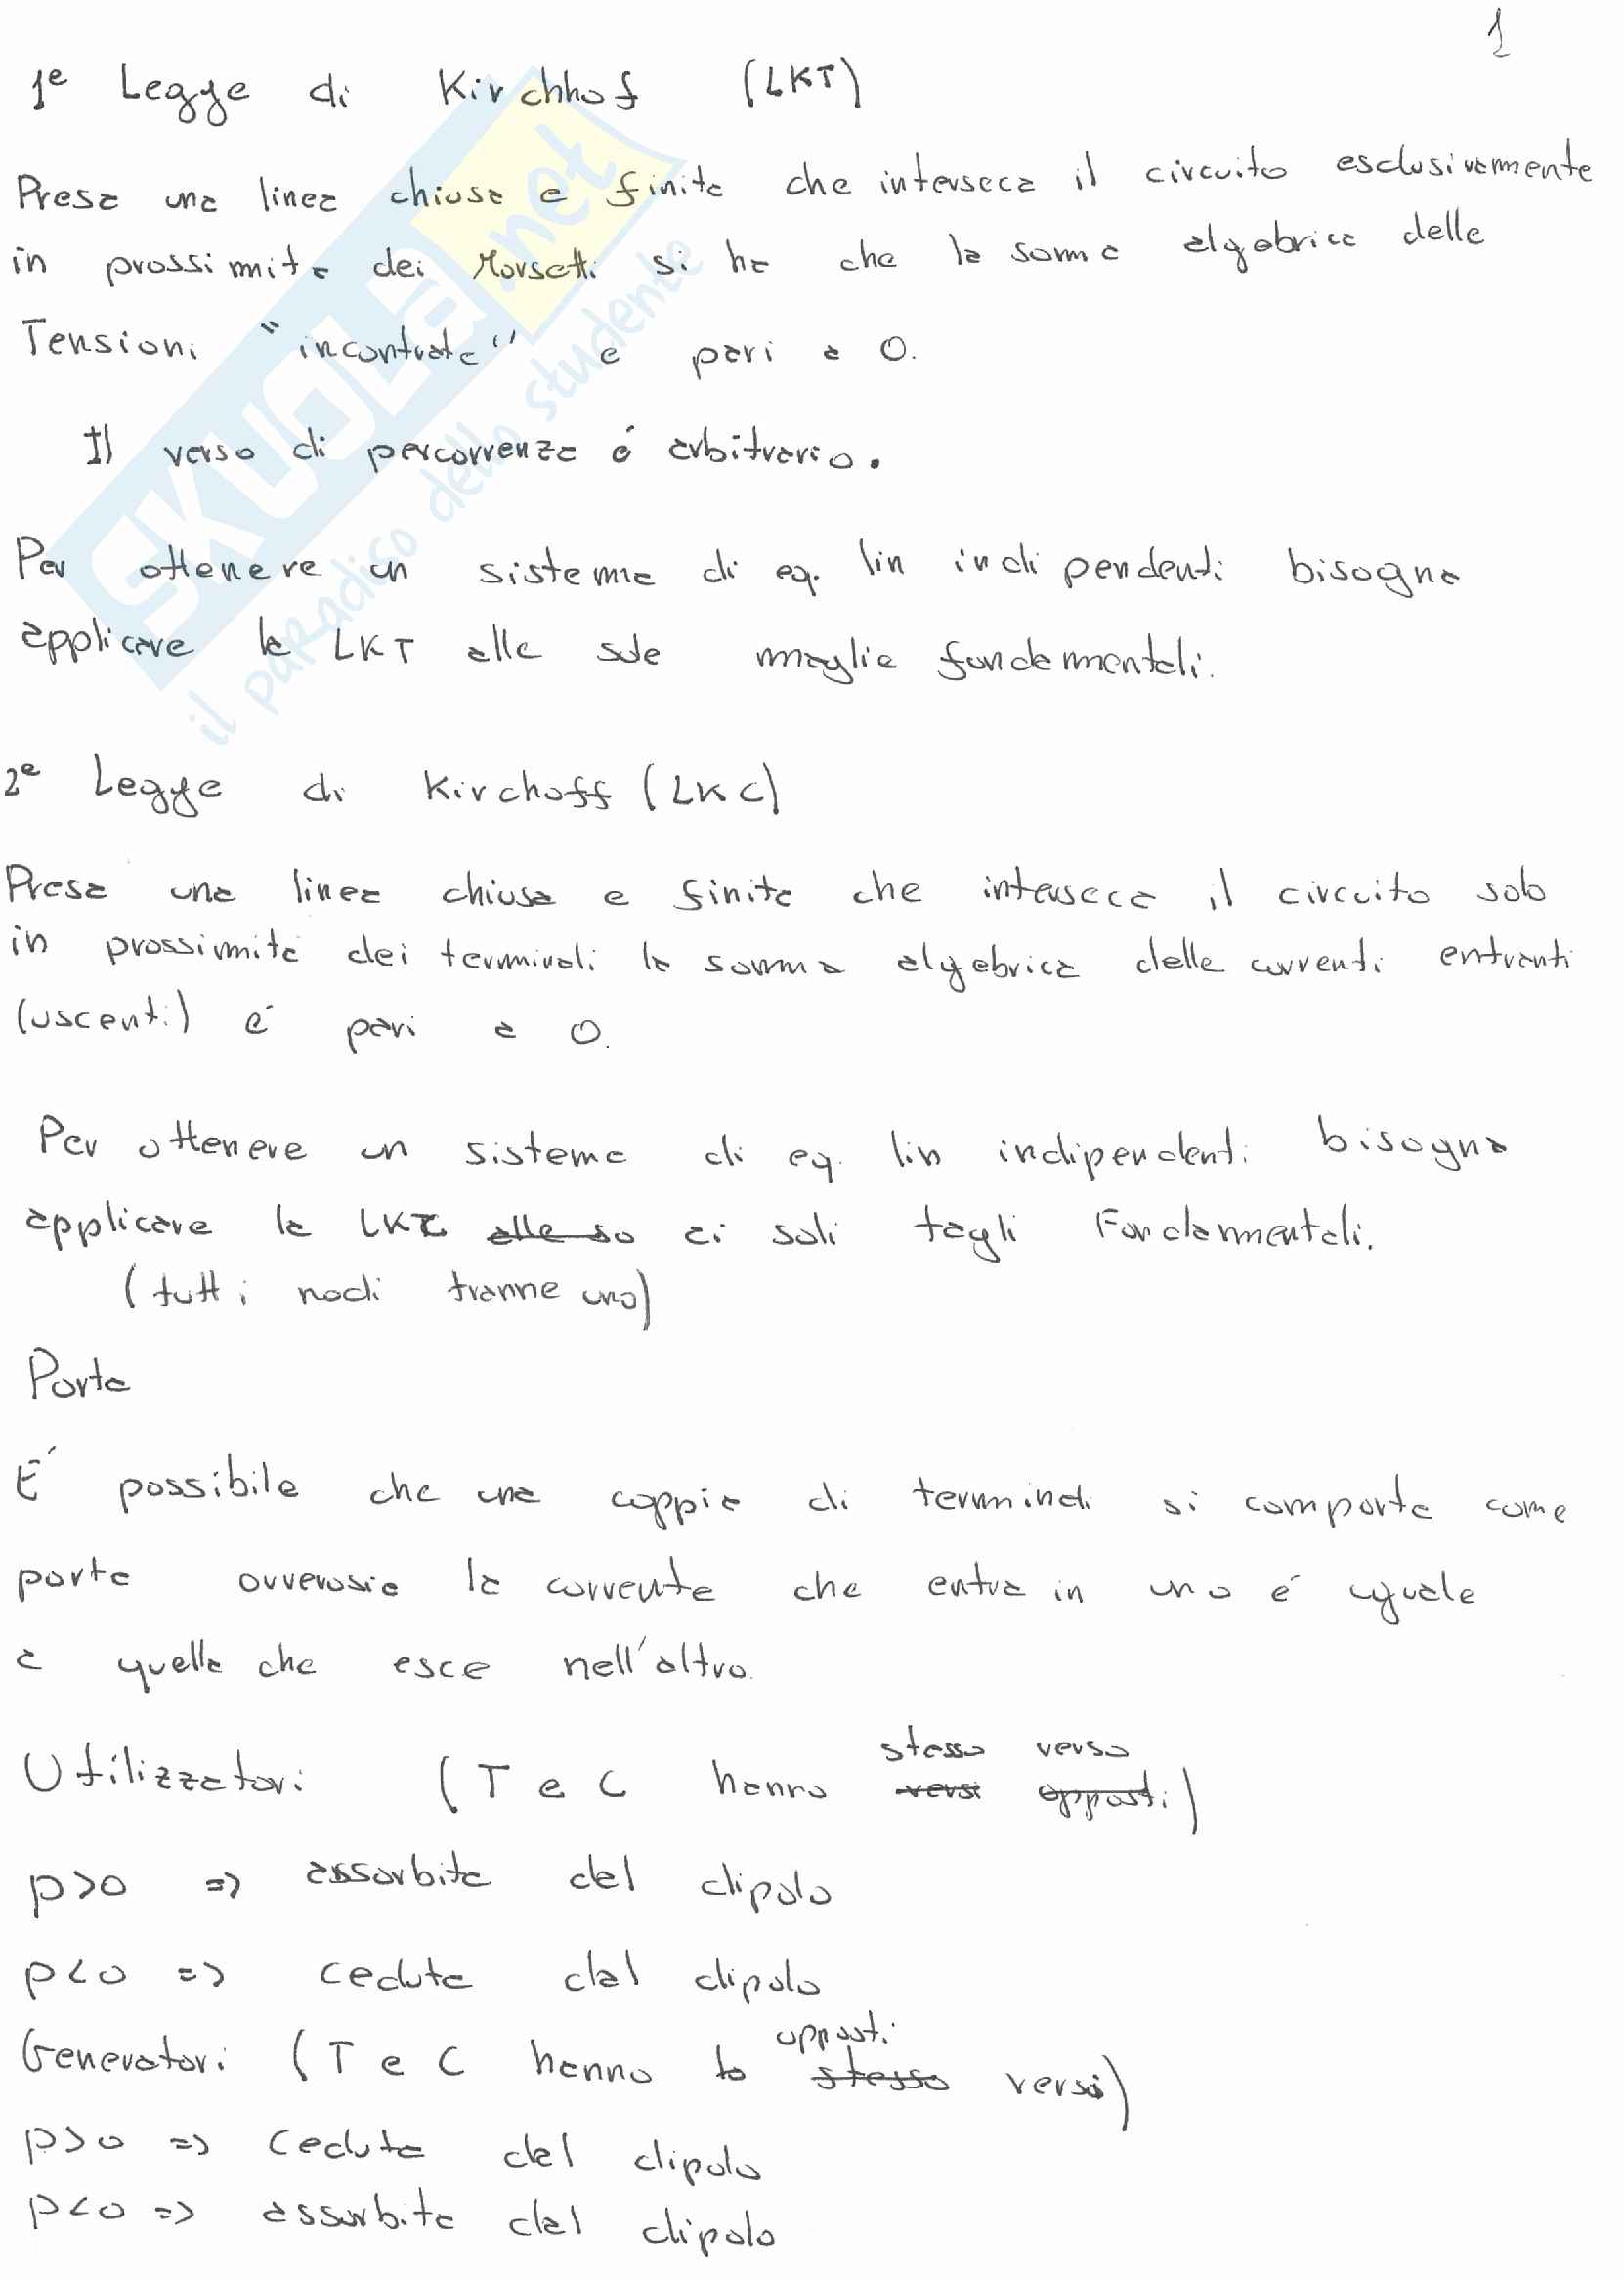 1
1ª Legge di Kirchhof (LKT)
Presa una linea chiusa e finita che interseca il circuito esclusivamente
in prossimita dei Morsetti si ha che la somma algebrica delle
Tensioni "incontrate" e pari a 0.
Il verso di percorrenza é arbitrario.
Per ottenere un sistema di eq. lin indipendenti bisogna
applicare la LKT alle sole maglie fondamentali.
2ª Legge di Kirchoff (LKC)
Presa una linea chiusa e finita che interseca il circuito solo
in prossimità dei terminali la somma algebrica delle correnti entranti
(uscenti) é pari a 0.
Per ottenere un sistema di eq. lin indipendenti bisogna
applicare la LKC alle so ai soli tagli Fondamentali.
(tutti i nodi tranne uno)
Porta
É possibile che una coppia di terminali si comporta come
porta ovverosia la corrente che entra in uno é uguale
a quella che esce nell'altro.
Utilizzatori (T e C hanno versi opposti stesso verso)
p>0 => assorbita dal dipolo
p<0 => ceduta dal dipolo
Generatori (T e C hanno lo stesso opposti versi)
p>0 => ceduta dal dipolo
p<0 => assorbita dal dipolo
SKUOLA.net
il paradiso dello studente